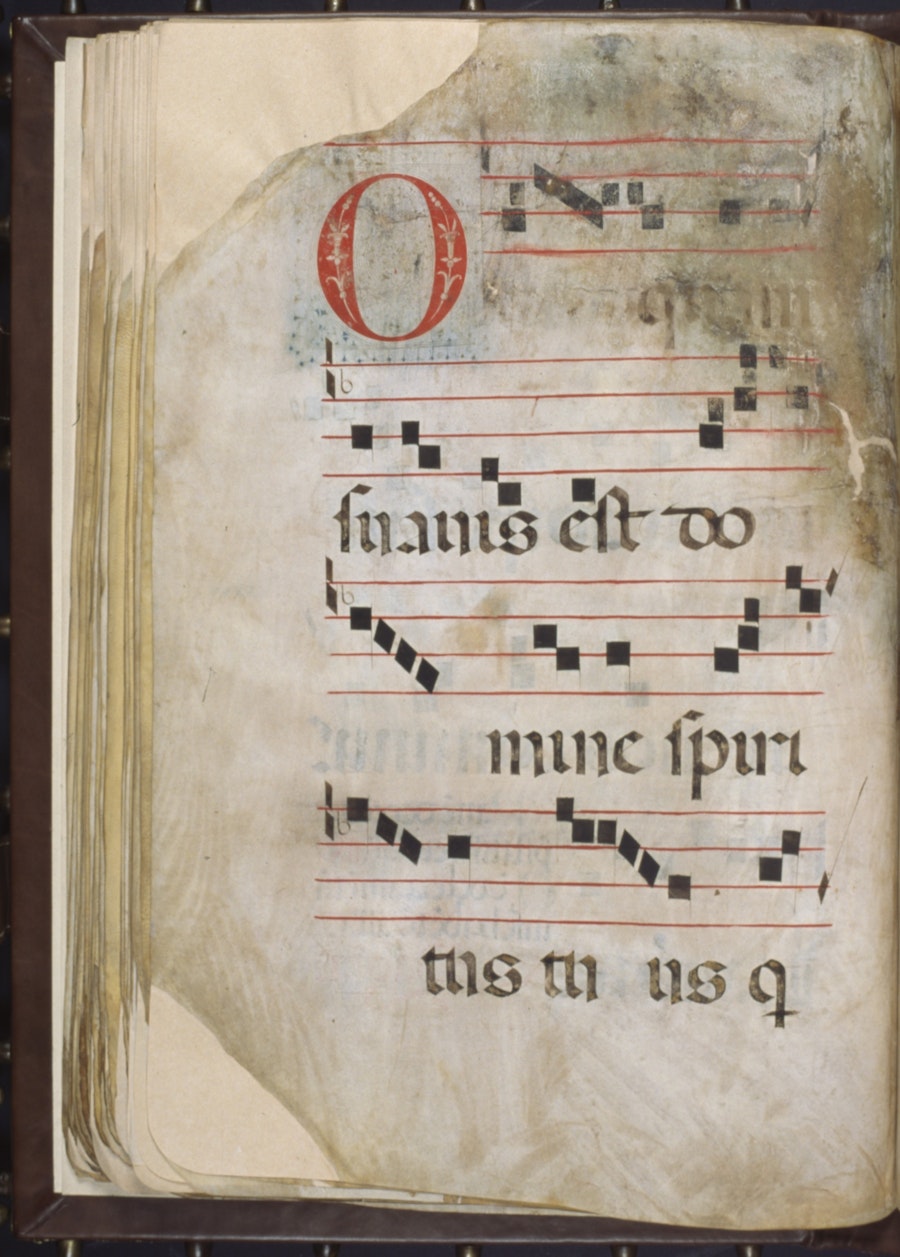 O quam
suauis est do
mine spiri
tus tu us q